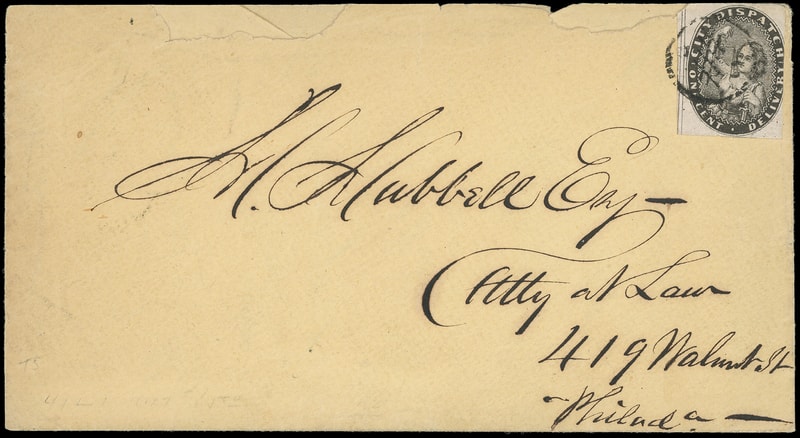 CITY DISPATCH
DELIVERY
ONE CENT
H. Hubbell Esq
Atty at Law
419 Walnut St
Philada